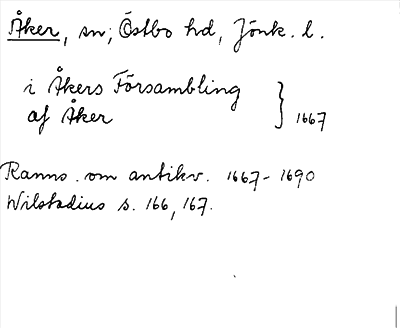 Åker, sn; Östbo hd, Jönk. l.
i Åkers Försambling
af Åker } 1667
Ranns. om antikv. 1667-1690
Wilstadius s. 166, 167.